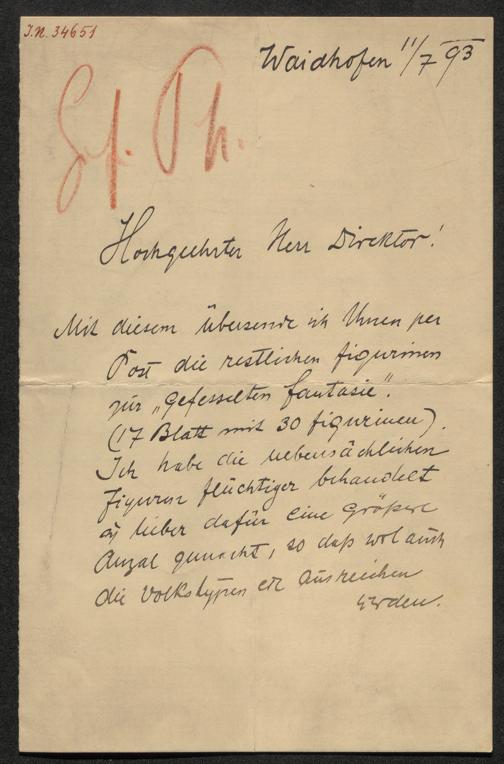 I.N. 34651
Waidhofen 11/7 93
Gf. Ph.
Hochgeehrter Herr Direktor!
Mit diesem übersende ich Ihnen per
Post die restlichen figurinen
zur „gefesselten fantasie".
(17 Blatt mit 30 figurinen).
Ich habe die nebensächlichen
figuren flüchtiger behandelt
u lieber dafür eine größere
Anzal gemacht, so daß wol auch
die Volkstypen etc ausreichen
werden.